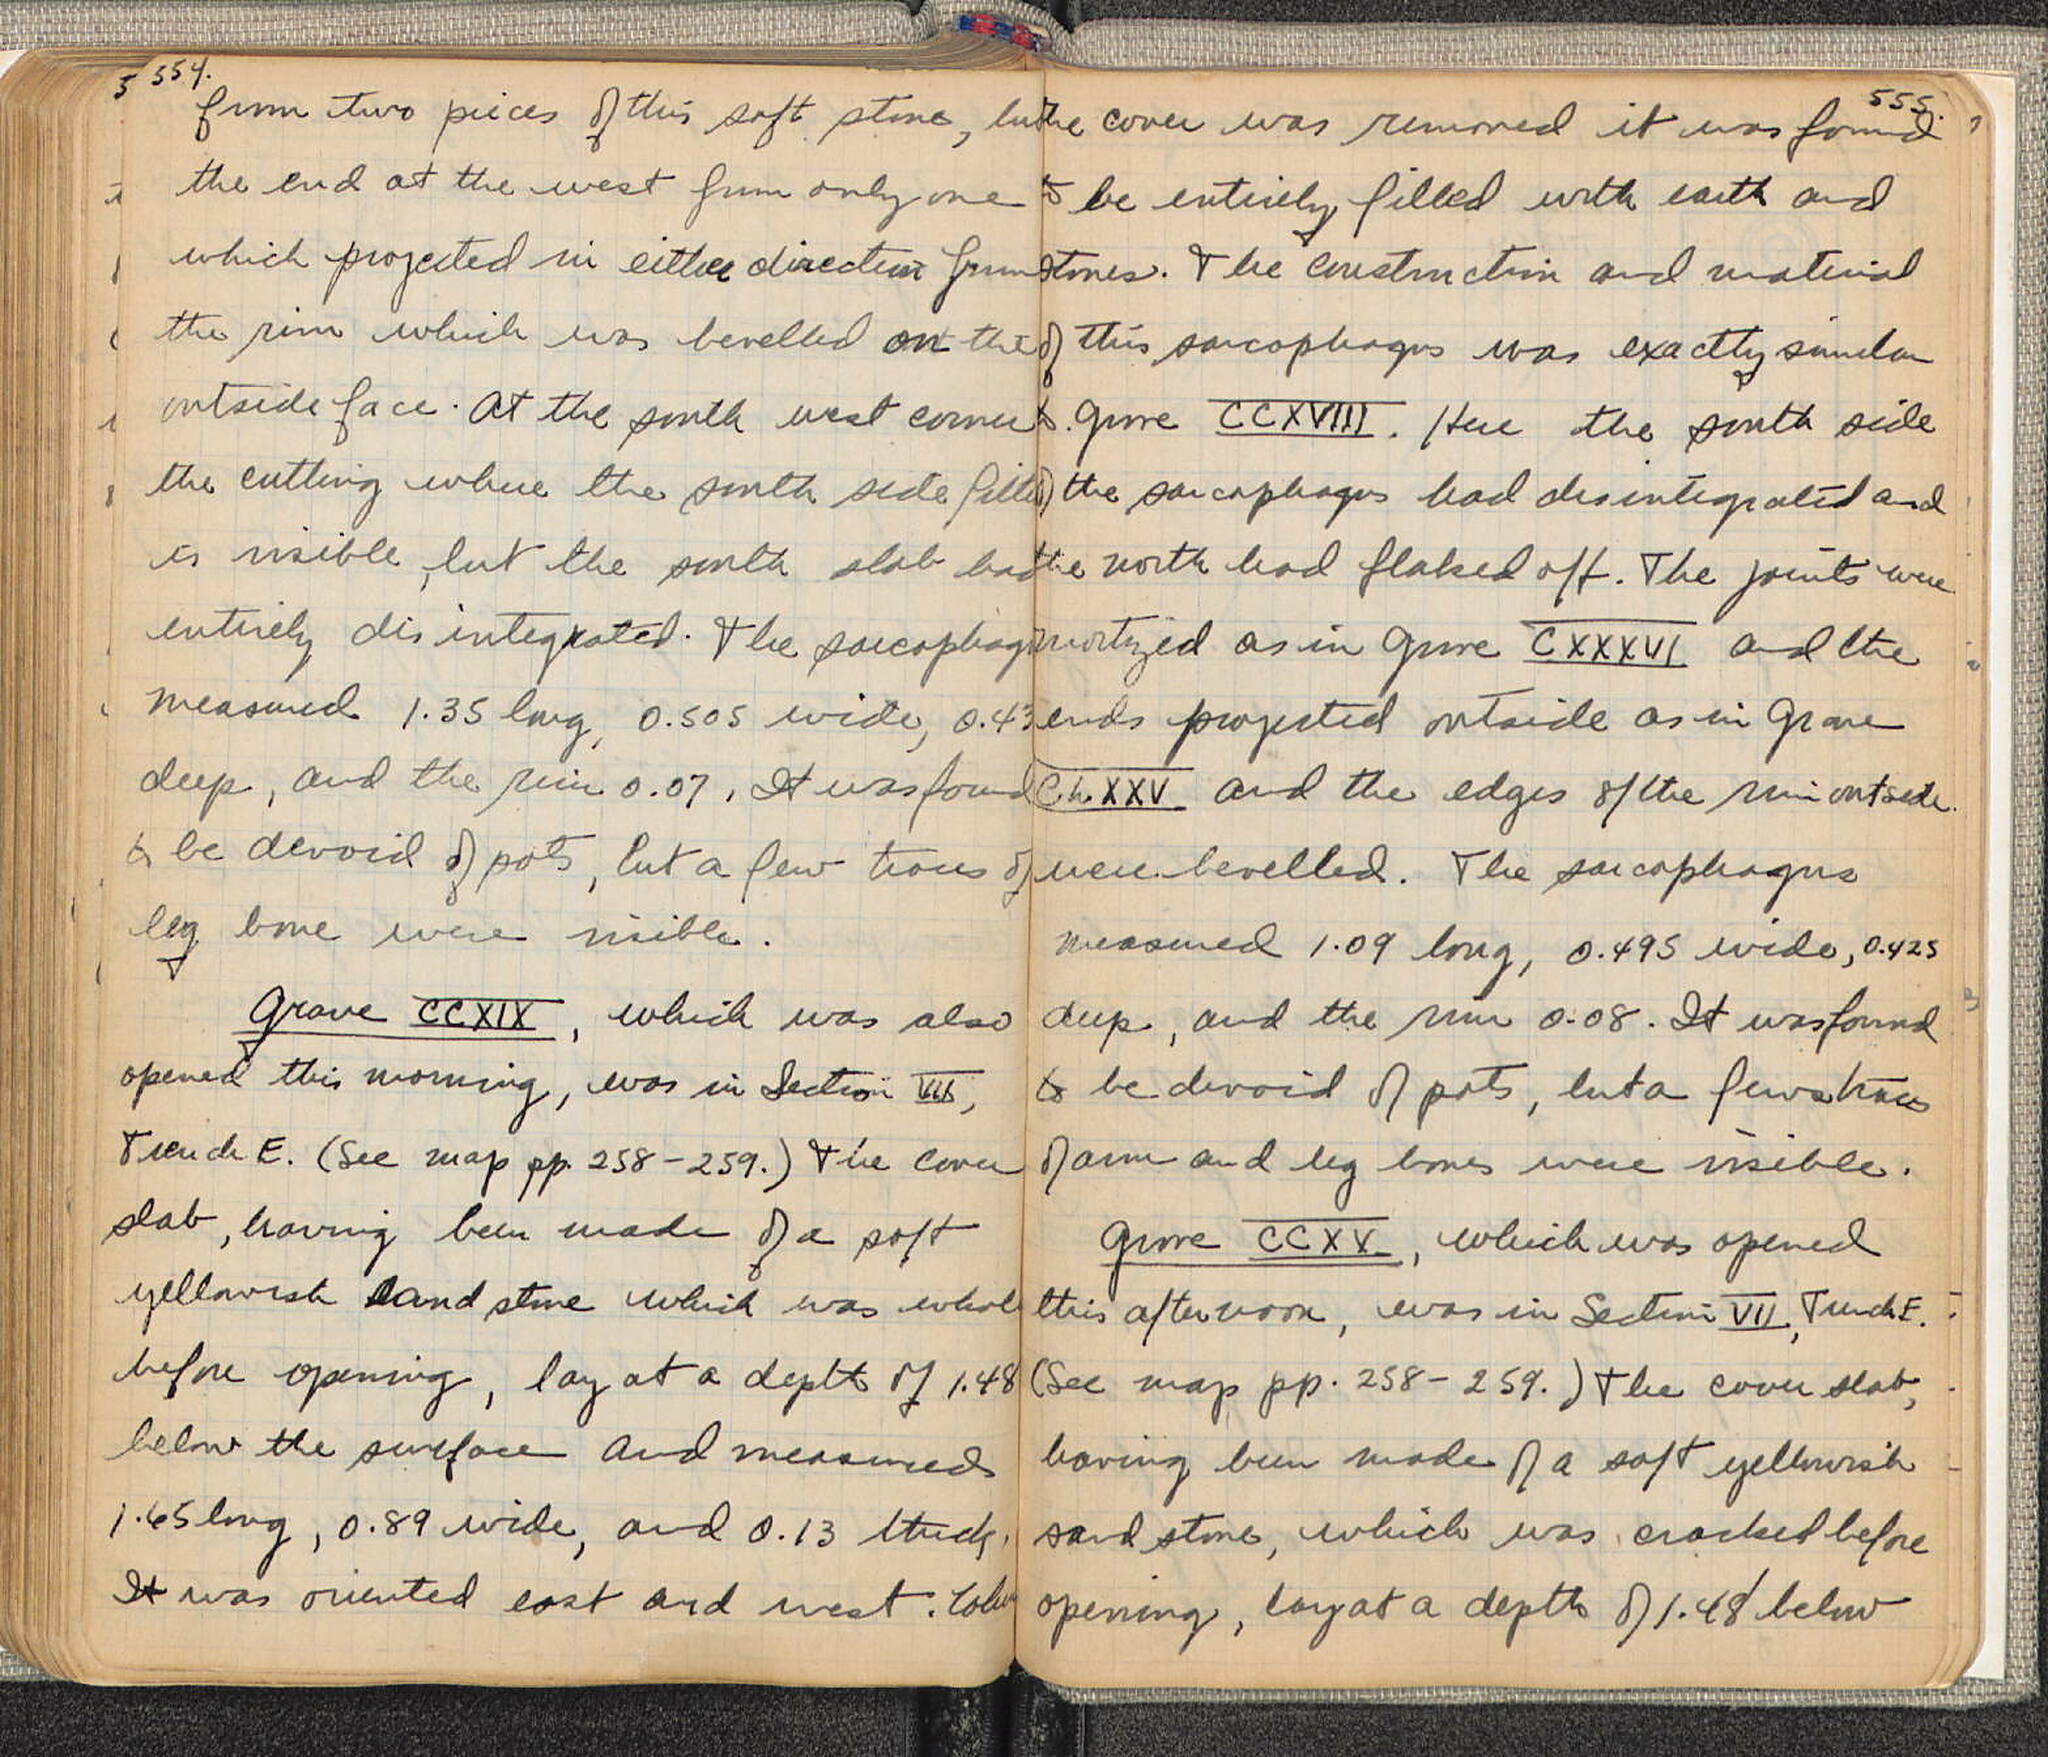 554.
from two pieces of this soft stone, but
the end at the west from only one
which projected in either direction from
the rim which was bevelled on the
outside face. At the south west corner
the cutting where the south side fitted
is visible, but the south slab had
entirely disintegrated. The sarcophagus
measured 1.35 long, 0.505 wide, 0.43
deep, and the rim 0.07. It was found
to be devoid of pots, but a few traces of
leg bone were visible.
Grave CCXIX, which was also
opened this morning, was in Section VII,
Trench E. (See map pp. 258-259.) The cover
slab, having been made of a soft
yellowish sand stone which was whole
before opening, lay at a depth of 1.48
below the surface and measured
1.65 long, 0.89 wide, and 0.13 thick.
It was oriented east and west. When
555.
the cover was removed it was found
to be entirely filled with earth and
stones. The construction and material
of this sarcophagus was exactly similar
to Grave CCXVIII. Here the south side
of the sarcophagus had disintegrated and
the north had flaked off. The joints were
mortized as in Grave CXXXVI and the
ends projected outside as in Grave
CLXXV and the edges of the rim outside
were bevelled. The sarcophagus
measured 1.09 long, 0.495 wide, 0.425
deep, and the rim 0.08. It was found
to be devoid of pots, but a few traces
of arm and leg bones were visible.
Grave CCXX, which was opened
this afternoon, was in Section VII, Trench E.
(See map pp. 258-259.) The cover slab,
having been made of a soft yellowish
sand stone, which was cracked before
opening, lay at a depth of 1.48 below